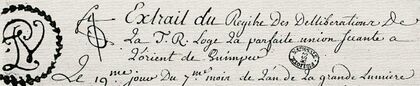 Extrait du Regître Des Delliberations De
La T. R. Loge La parfaite union seante a
L'orient de Quimper
Le 19.me jour Du 7.me mois de L'an de la grande Lumiere